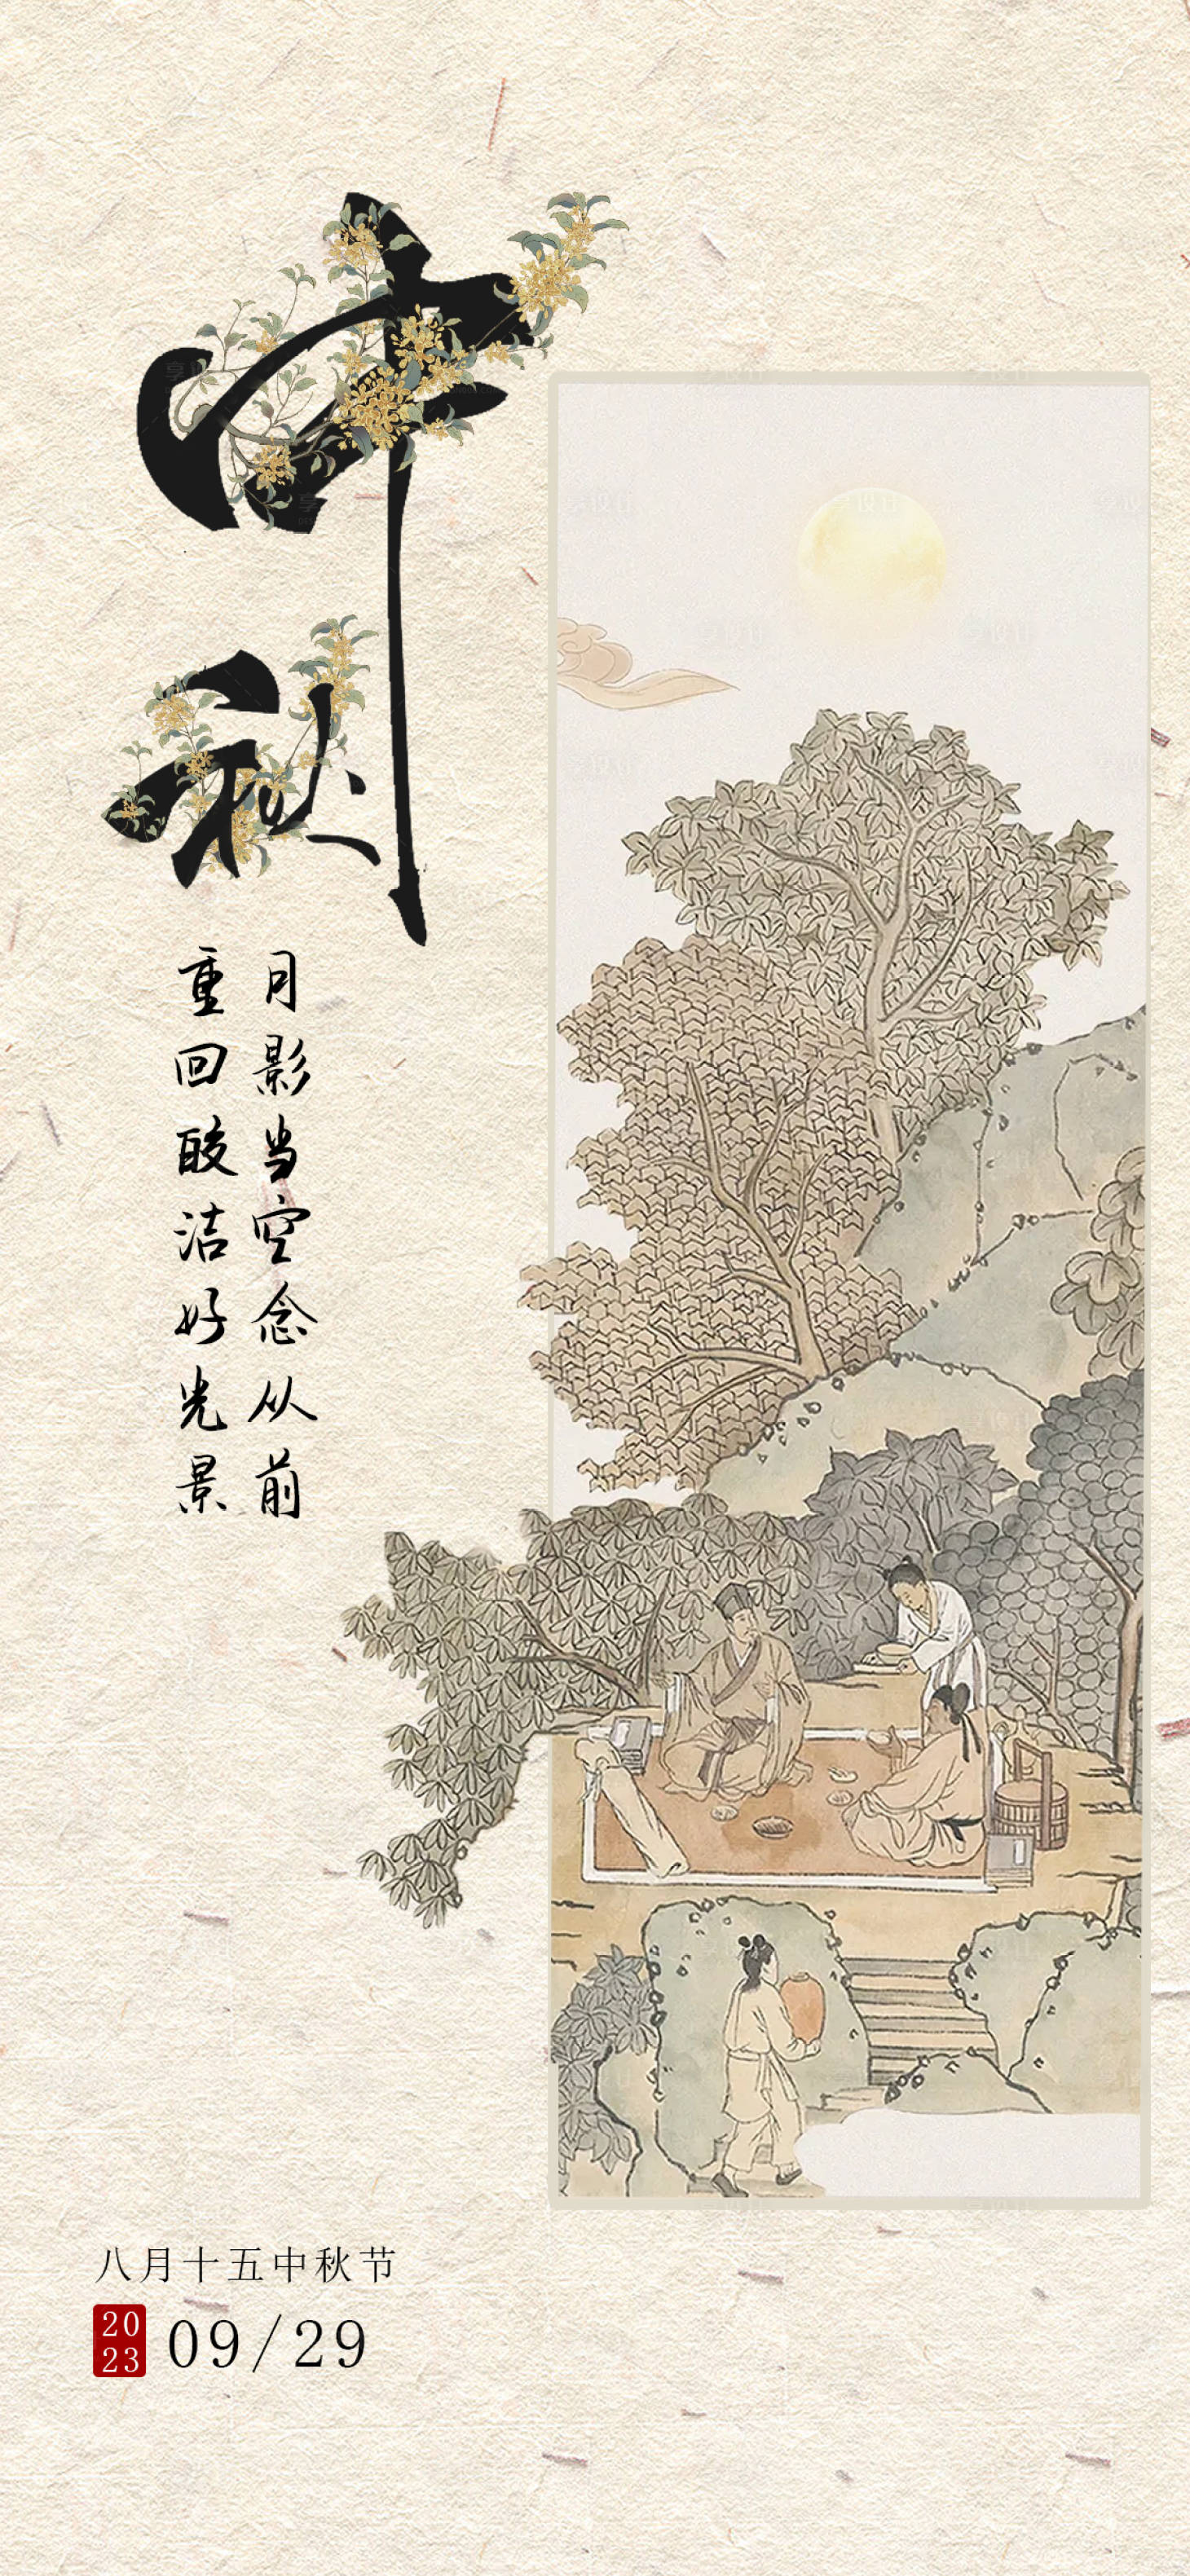 中秋
月影当空念从前
重回皎洁好光景
八月十五中秋节
2023
09/29